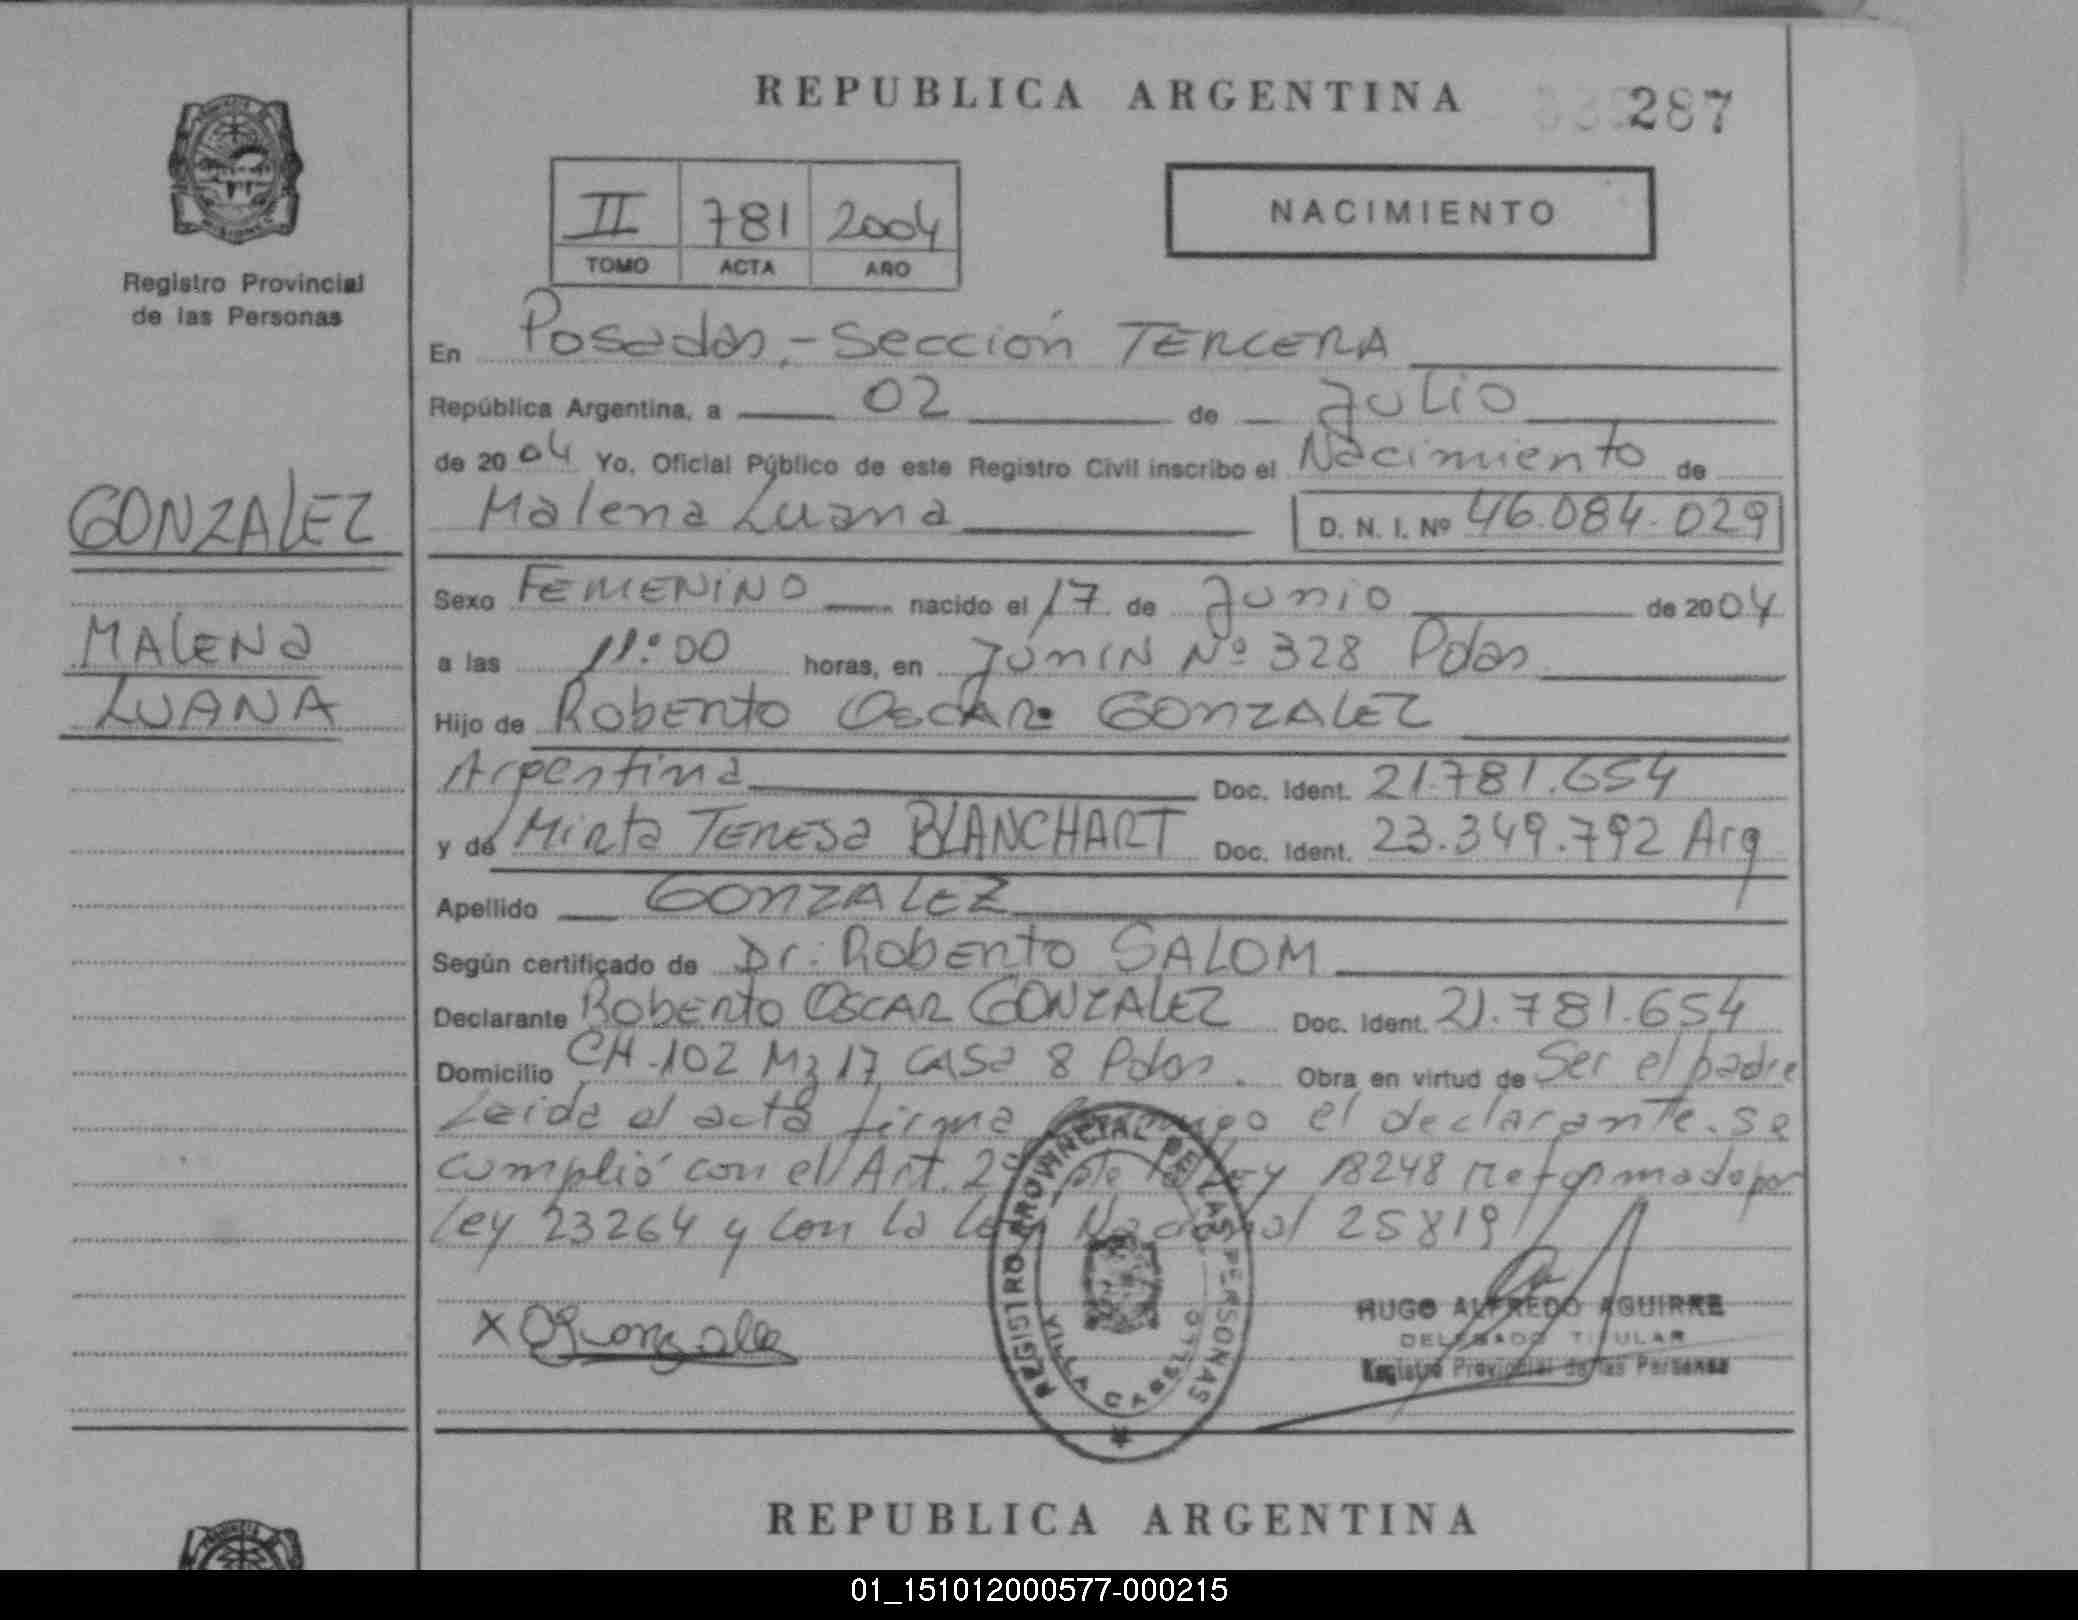 REPUBLICA ARGENTINA
287
Registro Provincial
de las Personas
II 781 2004
TOMO ACTA AÑO
NACIMIENTO
En Posadas,- Sección TERCERA
República Argentina, a 02 de Julio
de 2004 Yo, Oficial Público de este Registro Civil inscribo el Nacimiento de
GONZALEZ
Malena Luana D. N. I. Nº 46.084.029
Sexo FEMENINO nacido el 17 de Junio de 2004
MALENA
a las 11:00 horas, en JUNIN Nº 328 Pdas
LUANA
Hijo de Roberto OSCAR GONZALEZ
Argentina Doc. Ident. 21.781.654
y de Mirta TERESA BLANCHART Doc. Ident. 23.349.792 Arg
Apellido GONZALEZ
Según certificado de Dr. Roberto SALOM
Declarante Roberto OSCAR GONZALEZ Doc. Ident. 21.781.654
Domicilio CH.102 Mz 17 CASA 8 Pdas. Obra en virtud de Ser el padre
Leida el acta firma conmigo el declarante. se
cumplió con el Art. 2º de la Ley 18248 reformado por
Ley 23264 y con la Ley Nacional 25819
REGISTRO PROVINCIAL DE LAS PERSONAS
VILLA CABELLO
HUGO ALFREDO AGUIRRE
DELEGADO TITULAR
Registro Provincial de las Personas
REPUBLICA ARGENTINA
01_151012000577-000215